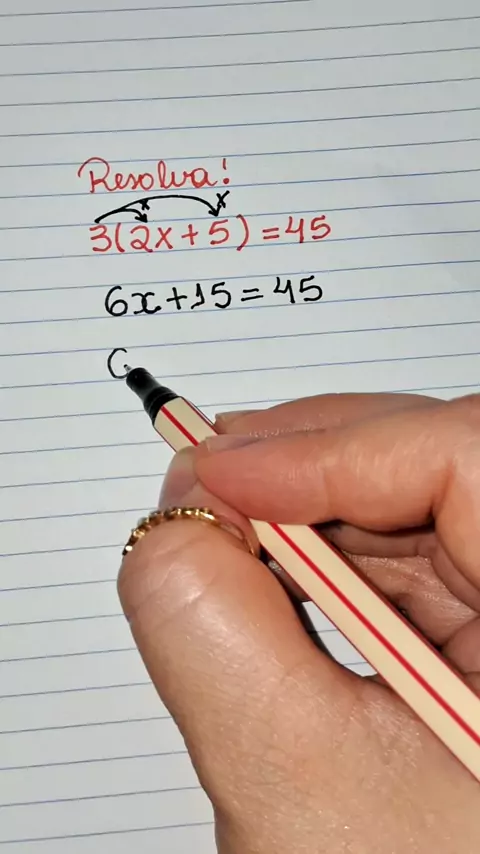 Resolva!
3(2x+5)=45
6x+15=45